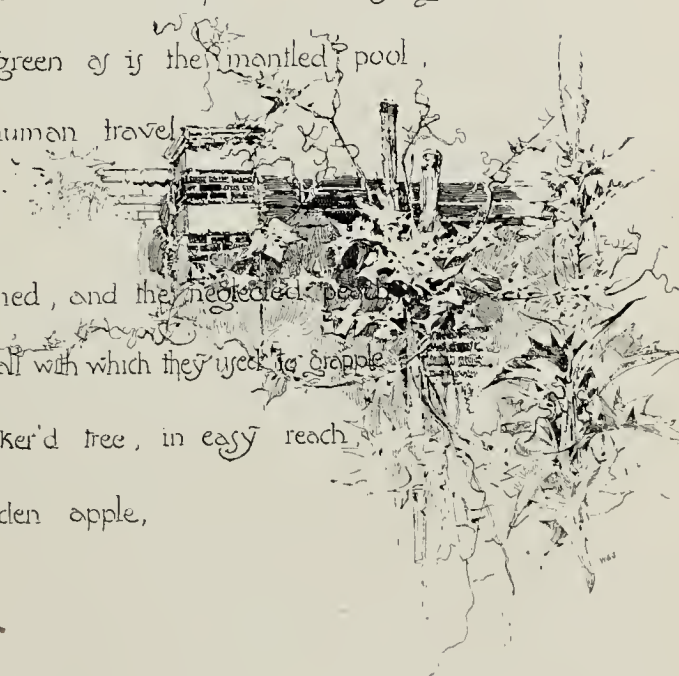 green as is the mantled pool,
human travel;
ned, and the neglected peach
all with which they used to grapple
ker'd tree, in easy reach,
den apple,